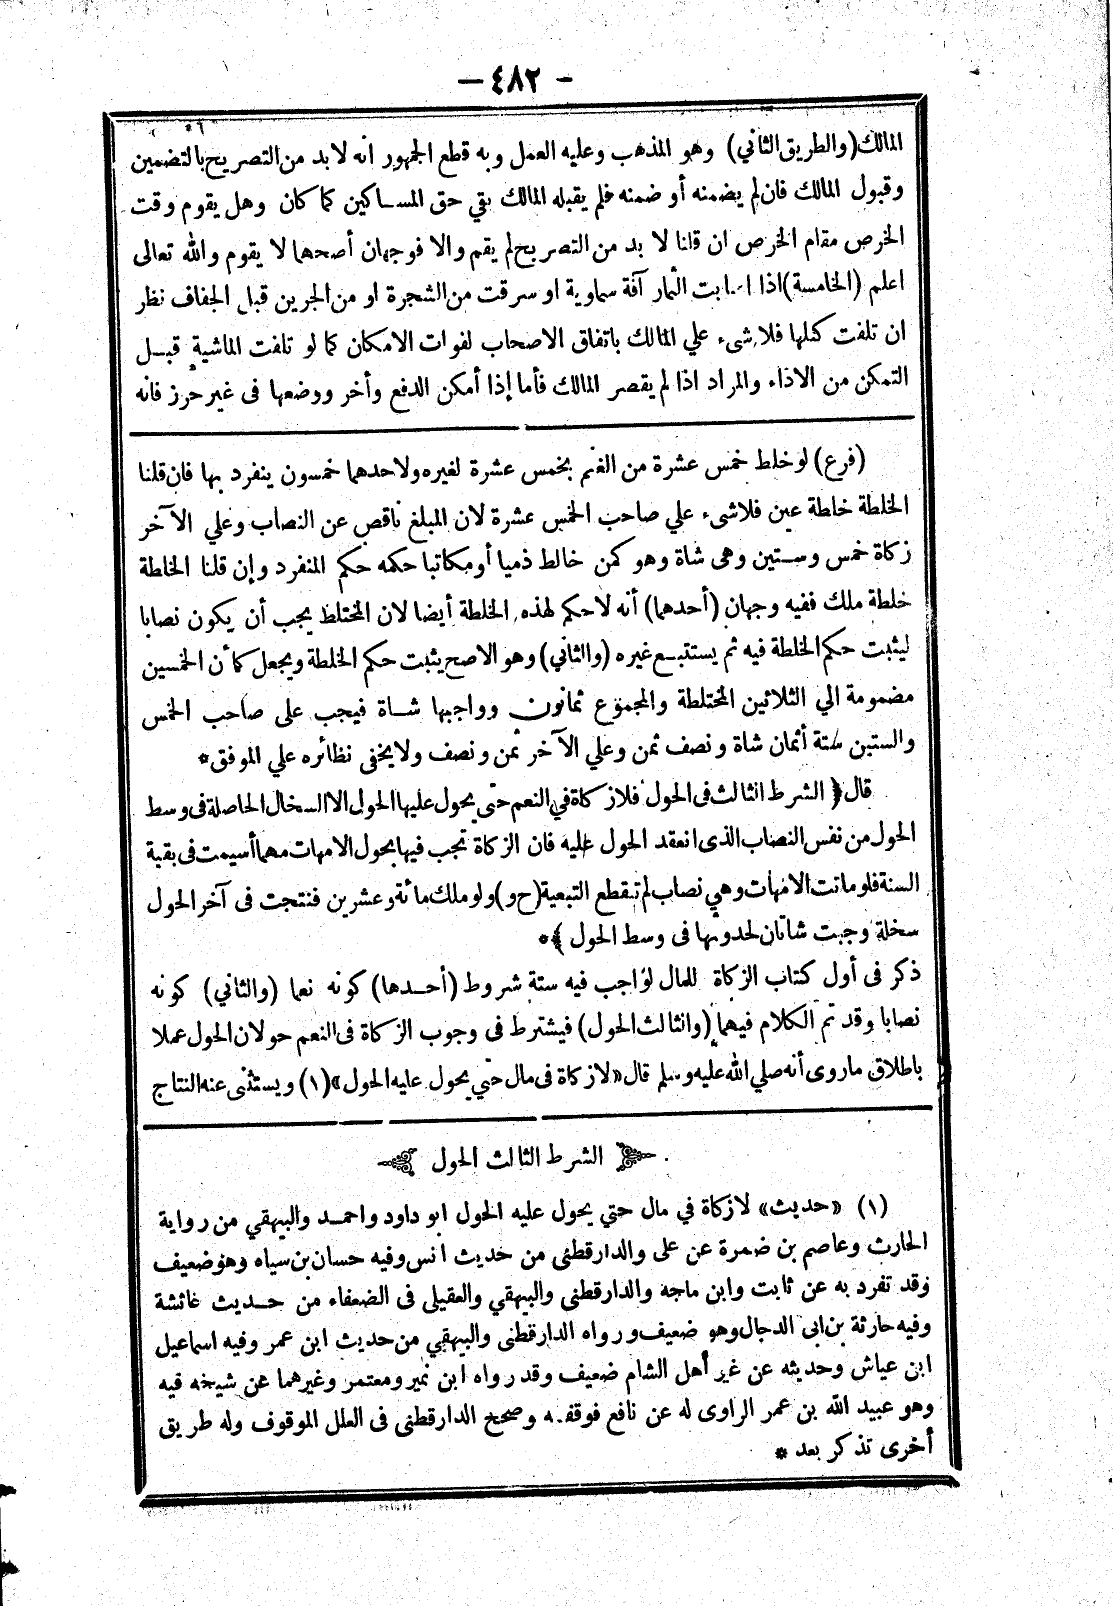 — ٤٨٢ —
المالك (والطريق الثاني) وهو المذهب وعليه العمل وبه قطع الجمهور انه لا بد من التصريح بالتضمين
وقبول المالك فان لم يضمنه أو ضمنه فلم يقبله المالك بقي حق المساكين كما كان وهل يقوم وقت
الخرص مقام الخرص ان قلنا لا بد من التصريح لم يقم والا فوجهان أصحهما لا يقوم والله تعالى
اعلم (الخامسة) اذا اصابت الثمار آفة سماوية او سرقت من الشجرة او من الجرين قبل الجفاف نظر
ان تلفت كلها فلا شىء علي المالك باتفاق الاصحاب لفوات الامكان كما لو تلفت الماشية قبل
التمكن من الاداء والمراد اذا لم يقصر المالك فأما إذا أمكن الدفع وأخر ووضعها فى غير حرز فانه
(فرع) لو خلط خمس عشرة من الغنم بخمس عشرة لغيره ولاحدهما خمسون ينفرد بها فان قلنا
الخلطة خلطة عين فلا شىء علي صاحب الخمس عشرة لان المبلغ ناقص عن النصاب وعلي الآخر
زكاة خمس وستين وهى شاة وهو كمن خالط ذميا أو مكاتبا حكمه حكم المنفرد وإن قلنا الخلطة
خلطة ملك ففيه وجهان (أحدهما) أنه لا حكم لهذه الخلطة أيضا لان المختلط يجب أن يكون نصابا
ليثبت حكم الخلطة فيه ثم يستتبع غيره (والثاني) وهو الاصح يثبت حكم الخلطة ويجعل كأن الخمسين
مضمومة الي الثلاثين المختلطة والمجموع ثمانون وواجبها شاة فيجب على صاحب الخمس
والستين ستة أثمان شاة ونصف ثمن وعلي الآخر ثمن ونصف ولا يخفى نظائره علي الموفق *
قال ﴿ الشرط الثالث فى الحول فلا زكاة في النعم حتى يحول عليها الحول الا السخال الحاصلة فى وسط
الحول من نفس النصاب الذى انعقد الحول عليه فان الزكاة تجب فيها بحول الامهات مهما أسيمت فى بقية
السنة فلو ماتت الامهات وهي نصاب لم تنقطع التبعية (ح و) ولو ملك مائة وعشرين فنتجت فى آخر الحول
سخلة وجبت شاتان لحدوثها فى وسط الحول ﴾ *
ذكر فى أول كتاب الزكاة للمال لواجب فيه ستة شروط (أحدها) كونه نعما (والثاني) كونه
نصابا وقد تم الكلام فيهما (والثالث الحول) فيشترط فى وجوب الزكاة فى النعم حولان الحول عملا
باطلاق ما روى أنه صلي الله عليه وسلم قال «لا زكاة فى مال حتي يحول عليه الحول» (١) ويستثنى عنه النتاج
الشرط الثالث الحول
(١) «حديث» لا زكاة في مال حتي يحول عليه الحول ابو داود واحمد والبيهقي من رواية
الحارث وعاصم بن ضمرة عن على والدارقطنى من حديث انس وفيه حسان بن سياه وهو ضعيف
وقد تفرد به عن ثابت وابن ماجه والدارقطنى والبيهقي والعقيلى فى الضعفاء من حديث عائشة
وفيه حارثة بن ابى الدجال وهو ضعيف ورواه الدارقطنى والبيهقي من حديث ابن عمر وفيه اسماعيل
ابن عياش وحديثه عن غير أهل الشام ضعيف وقد رواه ابن نمير ومعتمر وغيرهما عن شيخه فيه
وهو عبيد الله بن عمر الراوى له عن نافع فوقفه وصحح الدارقطنى فى العلل الموقوف وله طريق
أخرى تذكر بعد *